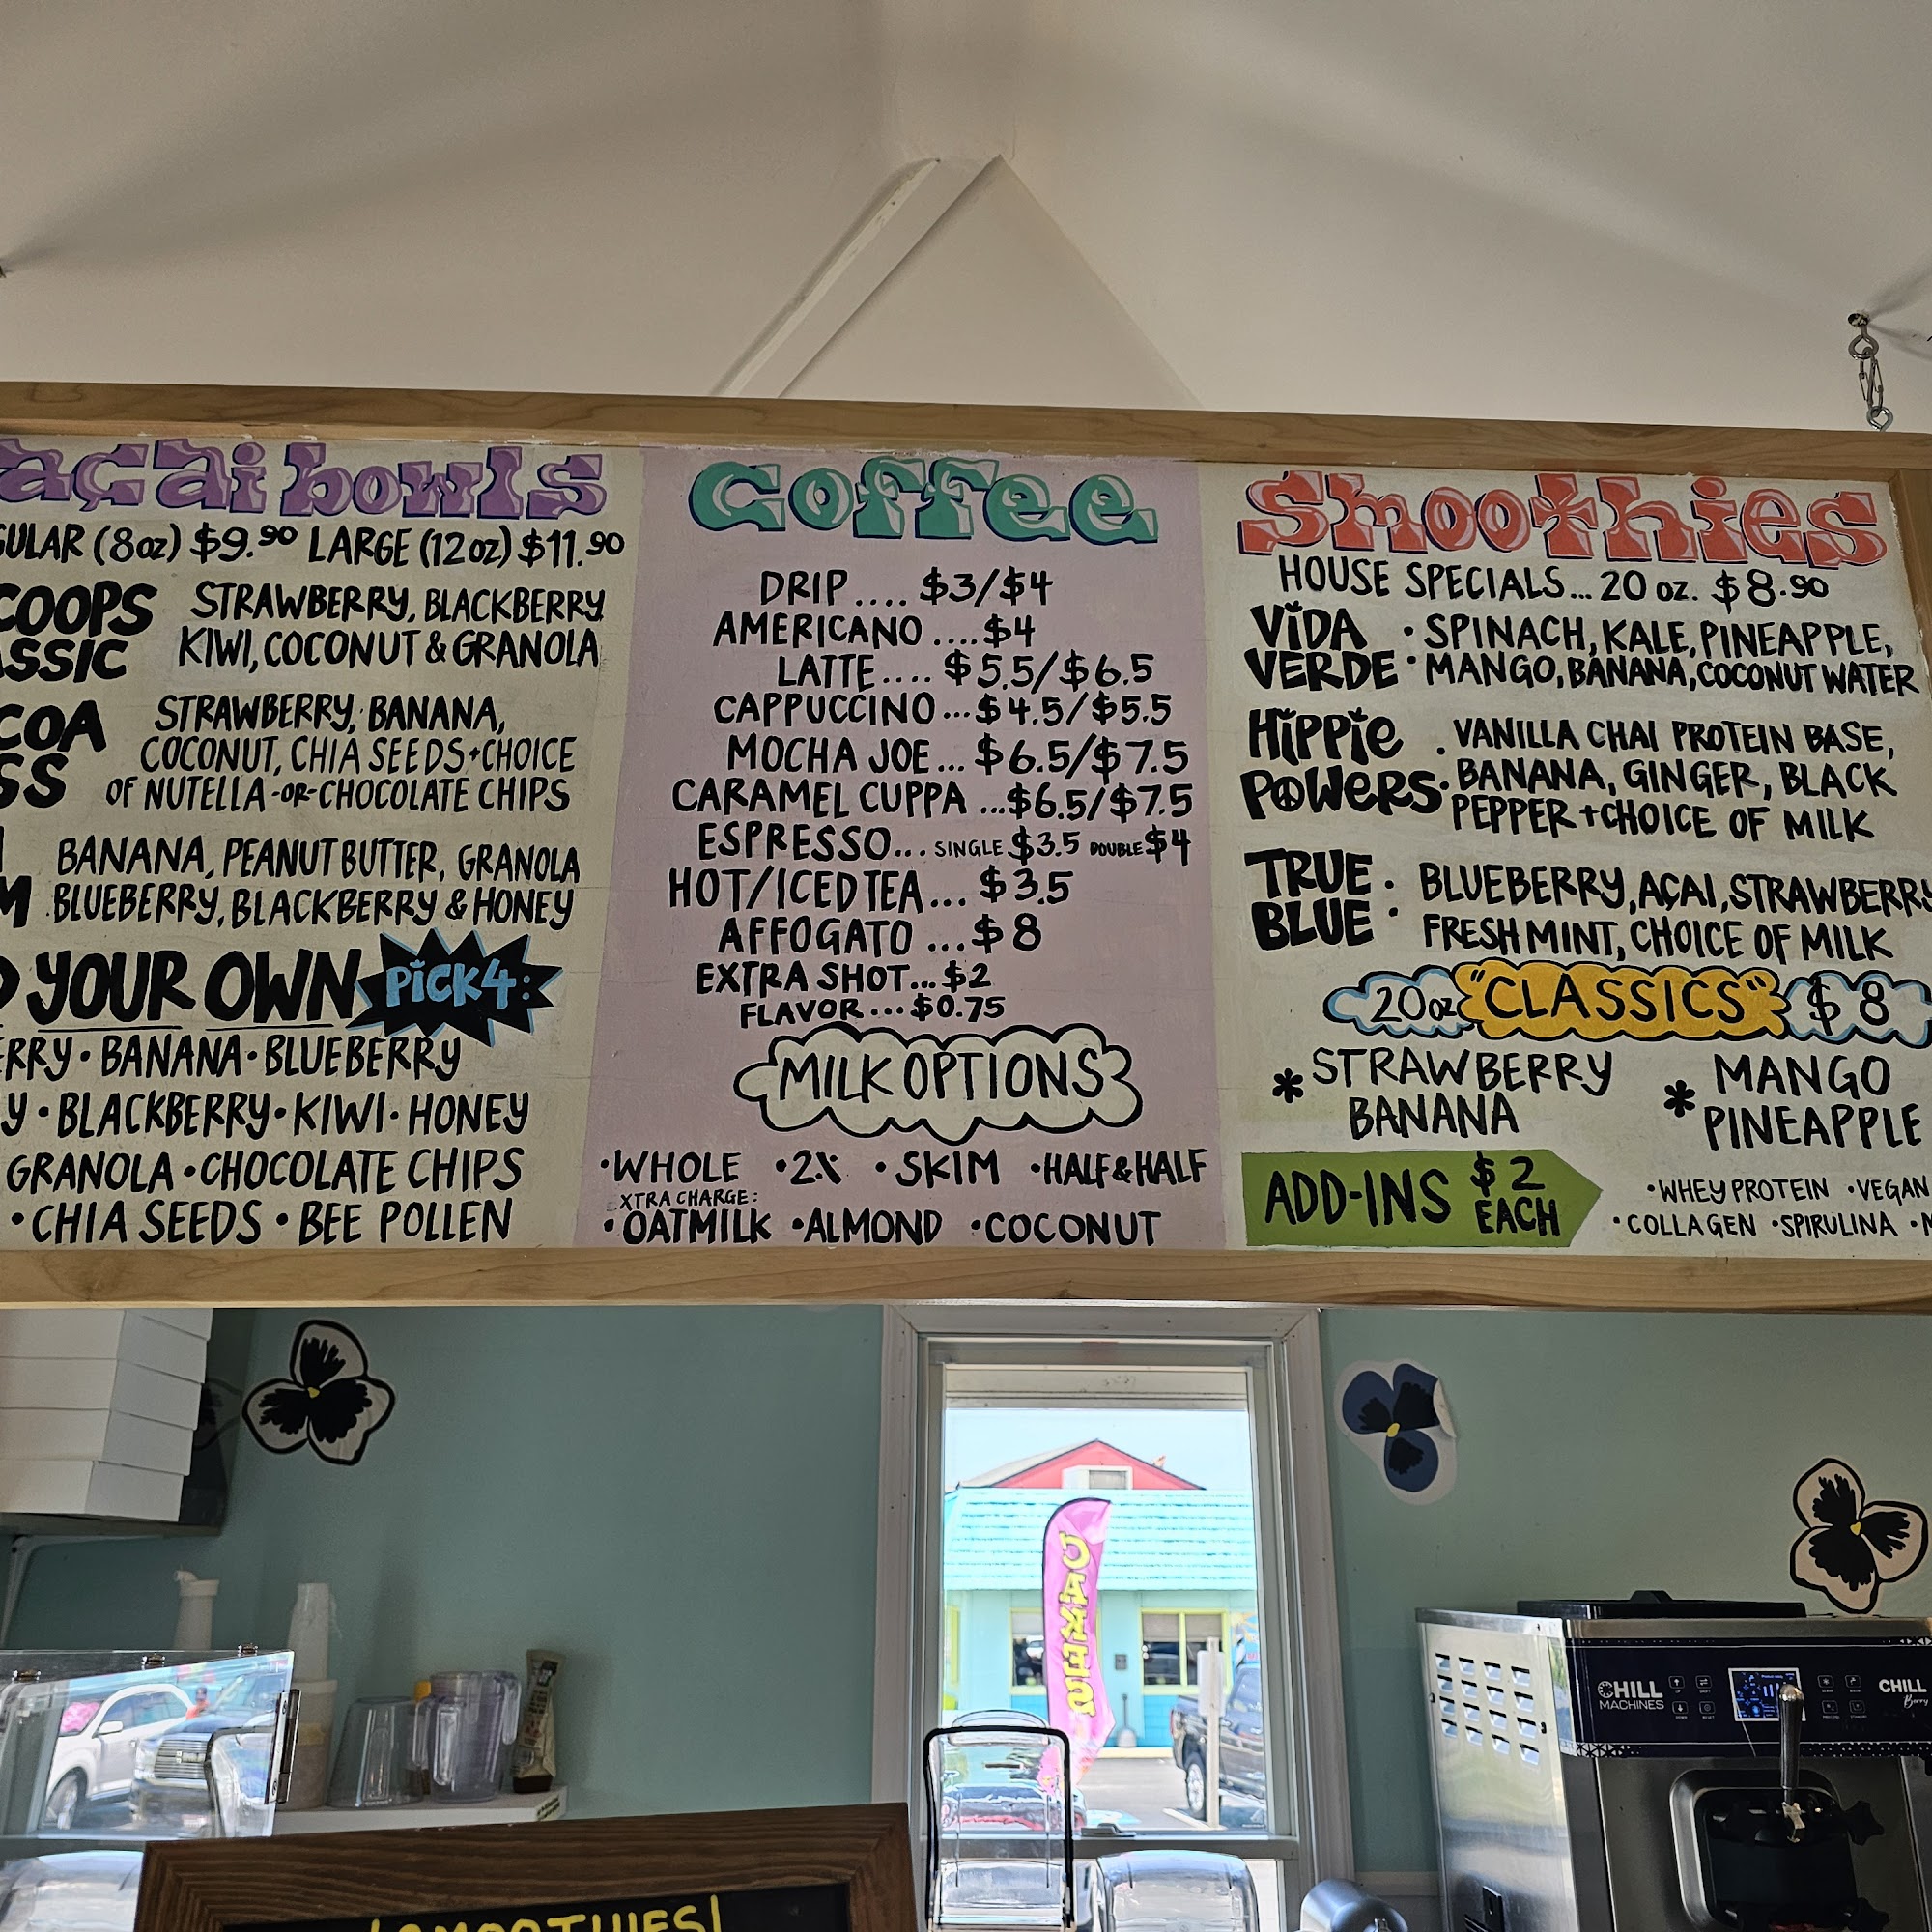 açai bowls
GULAR (8oz) $9.90 LARGE (12oz) $11.90
COOPS
ASSIC
STRAWBERRY, BLACKBERRY,
KIWI, COCONUT & GRANOLA
COA
SS
STRAWBERRY, BANANA,
COCONUT, CHIA SEEDS + CHOICE
OF NUTELLA -OR- CHOCOLATE CHIPS
M
BANANA, PEANUT BUTTER, GRANOLA
BLUEBERRY, BLACKBERRY & HONEY
YOUR OWN PICK 4:
ERRY • BANANA • BLUEBERRY
Y • BLACKBERRY • KIWI • HONEY
GRANOLA • CHOCOLATE CHIPS
• CHIA SEEDS • BEE POLLEN
Coffee
DRIP .... $3/$4
AMERICANO .... $4
LATTE .... $5.5/$6.5
CAPPUCCINO ... $4.5/$5.5
MOCHA JOE ... $6.5/$7.5
CARAMEL CUPPA ... $6.5/$7.5
ESPRESSO ... SINGLE $3.5 DOUBLE $4
HOT/ICED TEA ... $3.5
AFFOGATO ... $8
EXTRA SHOT ... $2
FLAVOR ... $0.75
MILK OPTIONS
• WHOLE • 2% • SKIM • HALF & HALF
XTRA CHARGE:
• OATMILK • ALMOND • COCONUT
Smoothies
HOUSE SPECIALS ... 20 oz. $8.90
VIDA
VERDE
• SPINACH, KALE, PINEAPPLE,
• MANGO, BANANA, COCONUT WATER
HIPPIE
POWERS
• VANILLA CHAI PROTEIN BASE,
• BANANA, GINGER, BLACK
PEPPER + CHOICE OF MILK
TRUE
BLUE
• BLUEBERRY, AÇAI, STRAWBERRY
• FRESH MINT, CHOICE OF MILK
20oz "CLASSICS" $8
* STRAWBERRY
BANANA
* MANGO
PINEAPPLE
ADD-INS $2
EACH
• WHEY PROTEIN • VEGAN
• COLLAGEN • SPIRULINA •
CAKES
CHILL
MACHINES
CHILL
Berry
!SMOOTHIES!